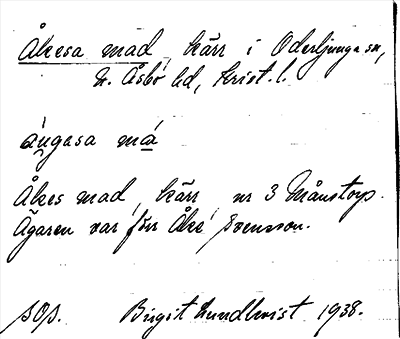 Åkesa mad, kärr i Oderljunga sn,
N. Åsbo hd, Krist. l.
ángasa má
Åkes mad, kärr, nr 3 Månstorp.
Ägaren var förr Åke Svensson.
Birgit Lundkvist 1938.